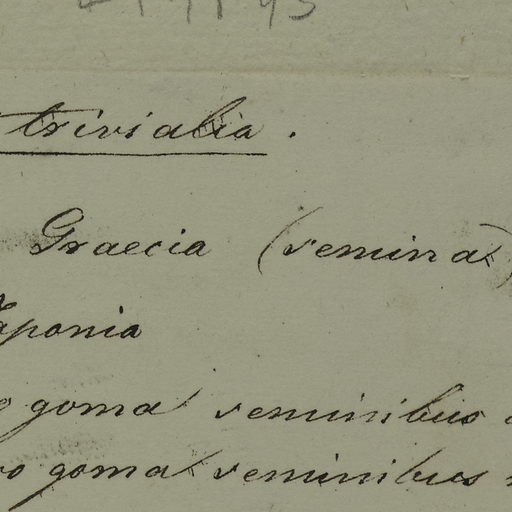 trivialia.
Graecia (semina)
Japonia
goma seminibus
goma seminibus